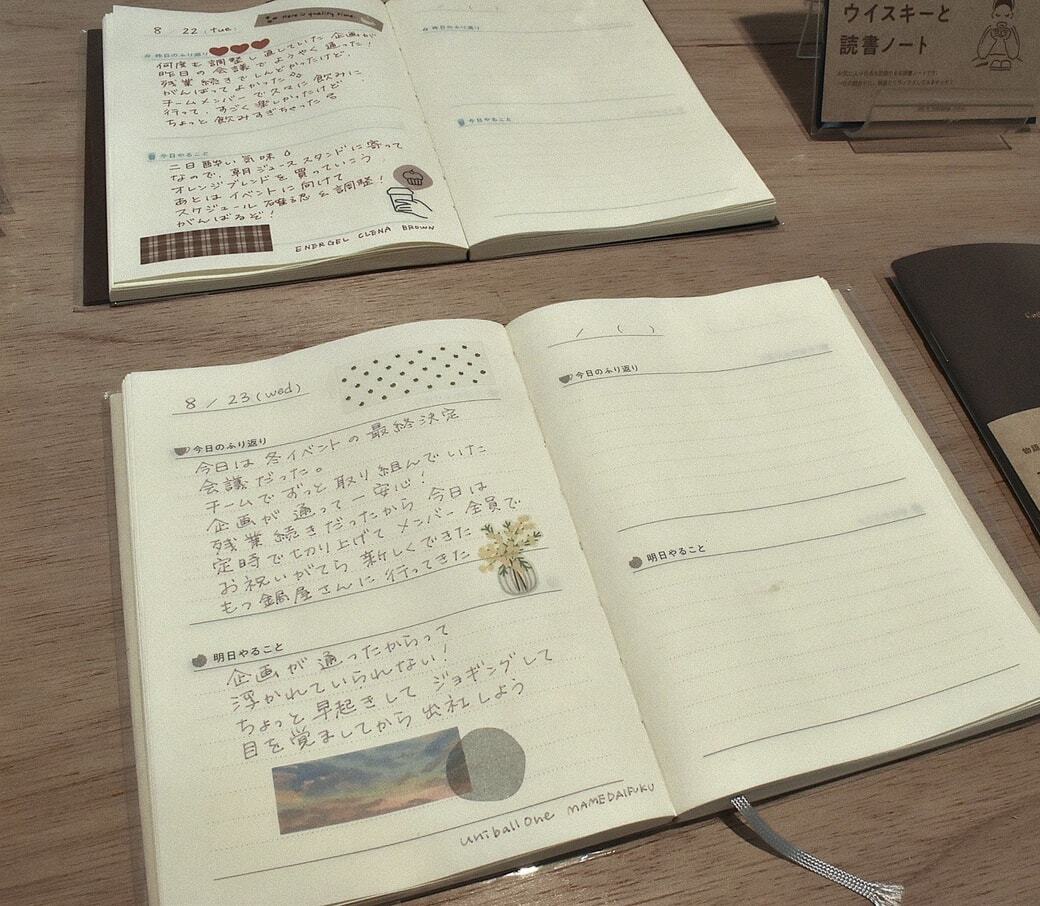 8 / 22 (tue)
Here is quality time.
昨日のふり返り
何度も調整し直していた企画が
昨日の会議でようやく通った!
残業続きでしんどかったけど、
がんばってよかった
チームメンバーで久々に飲みに
行って、すごく楽しかったけど
ちょっと飲みすぎちゃった
今日やること
二日酔い気味
なので、朝ジューススタンドに寄って
オレンジブレンドを買っていこう
あとはイベントに向けて
スケジュール確認&調整!
がんばるぞ!
ENERGEL CLENA BROWN
( )
昨日のふり返り
今日やること
ウイスキーと
読書ノート
8 / 23 (wed)
今日のふり返り
今日は冬イベントの最終決定
会議だった。
チームでずっと取り組んでいた
企画が通って一安心!
残業続きだったから今日は
定時で切り上げてメンバー全員で
お祝いがてら新しくできた
もつ鍋屋さんに行ってきた
明日やること
企画が通ったからって
浮かれていられない!
ちょっと早起きしてジョギングして
目を覚ましてから出社しよう
uniball one MAMEDAIFUKU
/ ( )
今日のふり返り
明日やること
物語